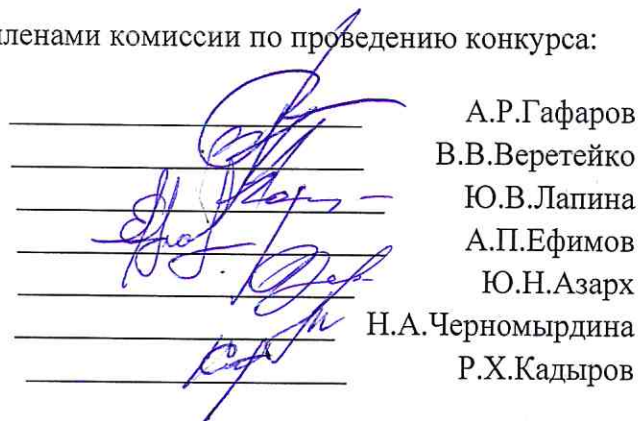 членами комиссии по проведению конкурса:
А.Р.Гафаров
В.В.Веретейко
Ю.В.Лапина
А.П.Ефимов
Ю.Н.Азарх
Н.А.Черномырдина
Р.Х.Кадыров